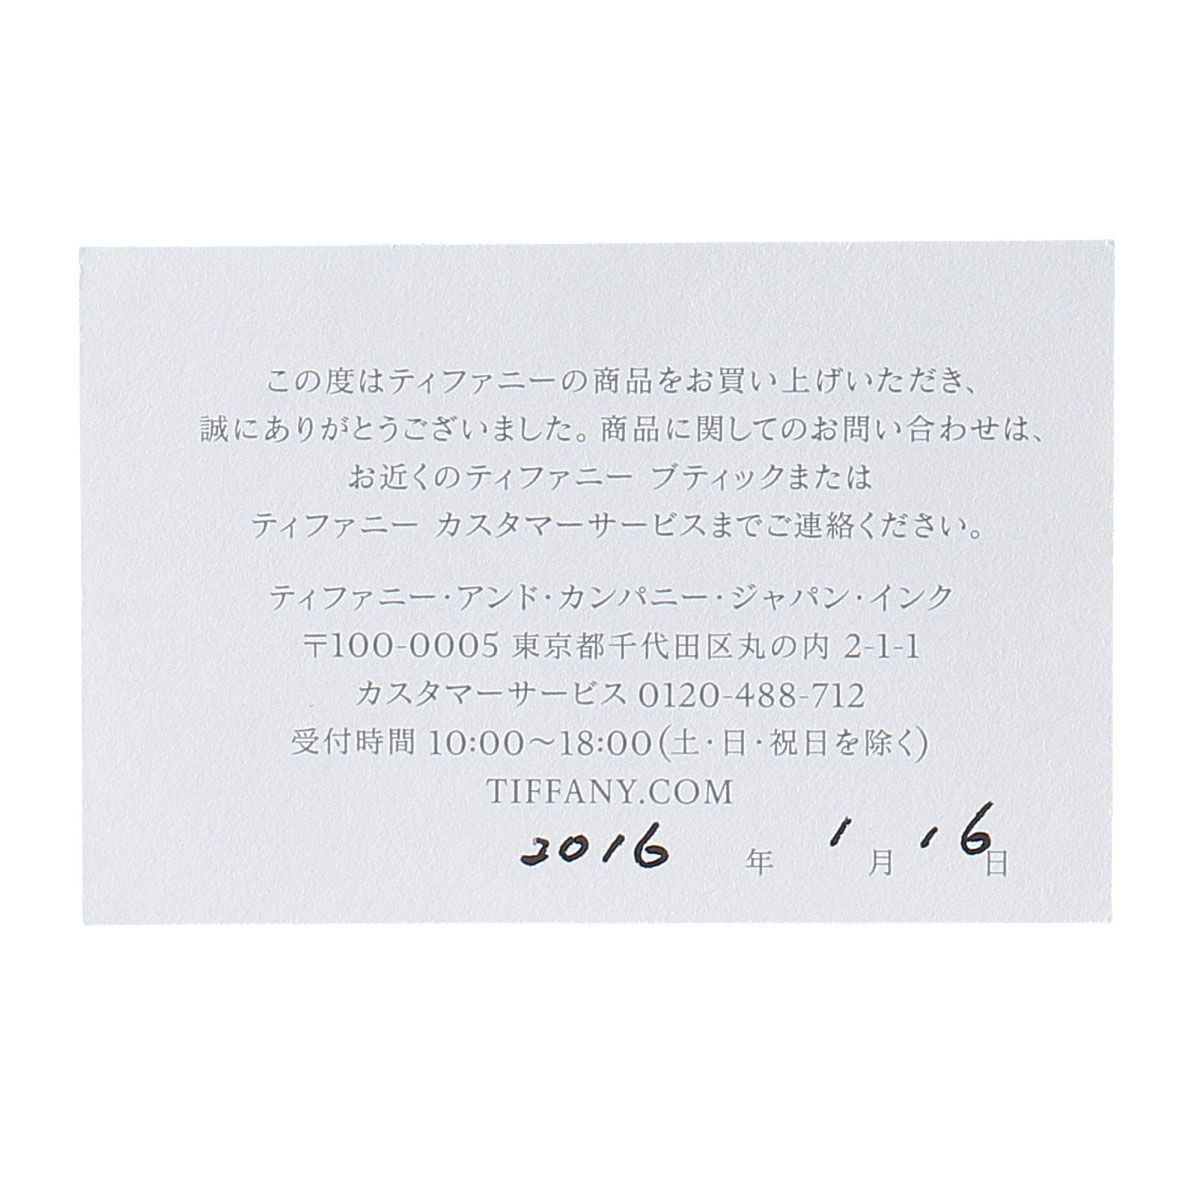 この度はティファニーの商品をお買い上げいただき、
誠にありがとうございました。商品に関してのお問い合わせは、
お近くのティファニー ブティックまたは
ティファニー カスタマーサービスまでご連絡ください。
ティファニー・アンド・カンパニー・ジャパン・インク
〒100-0005 東京都千代田区丸の内 2-1-1
カスタマーサービス 0120-488-712
受付時間 10:00〜18:00(土・日・祝日を除く)
TIFFANY.COM
2016 年 1 月 16 日